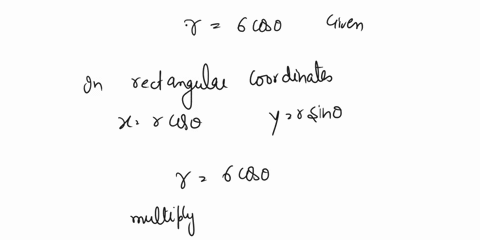 r = 6 cosθ Given
In rectangular coordinates
x = r cosθ y = r sinθ
r = 6 cosθ
multiply